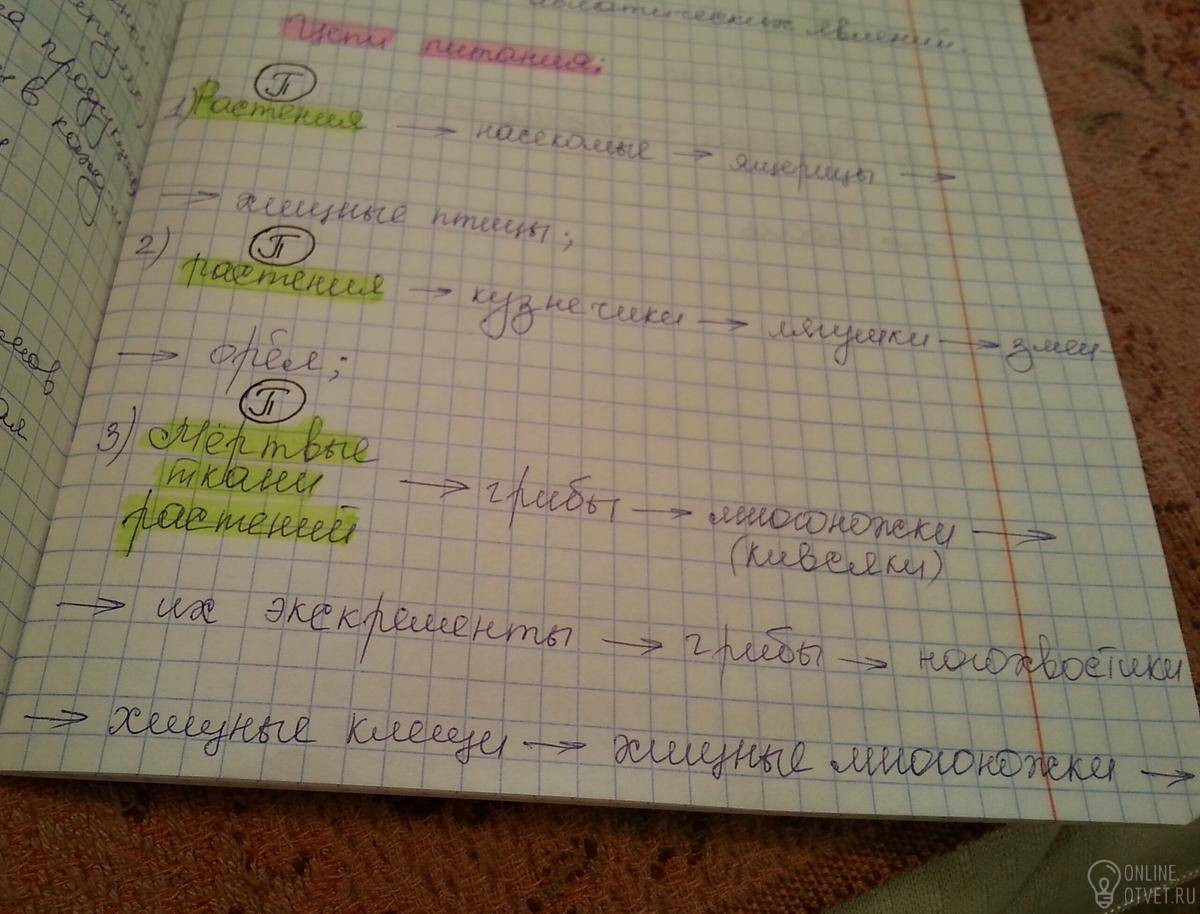 явлений.
Цепи питания:
П
1) Растения → насекомые → ящерицы →
→ хищные птицы;
П
2) растения → кузнечики → лягушки → змеи
→ орёл;
П
3) Мёртвые
ткани
растений → грибы → многоножки →
(кивсяки)
→ их экскременты → грибы → ногохвостики
→ хищные клещи → хищные многоножки →
ONLINE
OTVET.RU